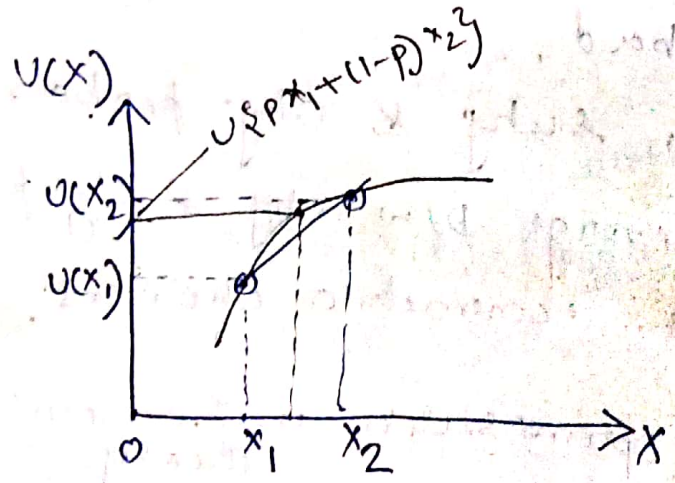 U{px₁+(1-p)x₂}
U(X)
U(x₂)
U(x₁)
0 x₁ x₂ X